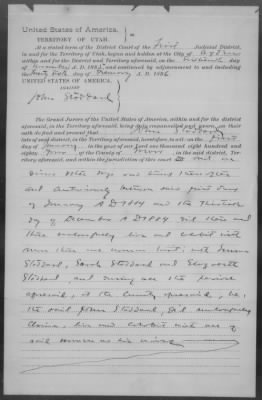 United States of America,
TERRITORY OF UTAH.
At a stated term of the District Court of the First Judicial District,
in and for the Territory of Utah, begun and holden at the City of Ogden
within and for the District and Territory aforesaid, on the day
of A. D. 1885, and continued by adjournment to and including
the day of A. D. 1886
UNITED STATES OF AMERICA,
AGAINST
John Stoddard
The Grand Jurors of the United States of America, within and for the district
aforesaid, in the Territory aforesaid, being duly empaneled and sworn, on their
oath do find and present that John Stoddard
late of said district, in the Territory aforesaid, heretofore, to wit: on the first
day of January, in the year of our Lord one thousand eight hundred and
eighty four at the County of in the said district, Territory
aforesaid and within the jurisdiction of this court and on
divers other days and times thereafter
and continuously between said first day
of January A D 1884 and the
day of December A D 1884 did then and
there unlawfully live and cohabit with
more than one woman to wit: with
Stoddard, Sarah Stoddard and Elizabeth
Stoddard, and during all the period
aforesaid, at the County aforesaid, he,
the said John Stoddard, did unlawfully
claim, live and cohabit with all of
said women as his wives